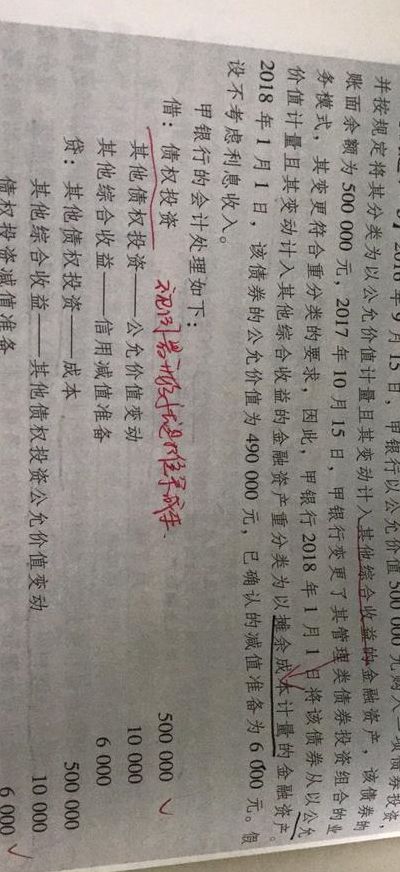 2016年9月15日，甲银行以公允价值500 000元购入一项债券投资，
并按规定将其分类为以公允价值计量且其变动计入其他综合收益的金融资产，该债券的
账面余额为500 000元，2017年10月15日，甲银行变更了其管理类债券投资组合的业
务模式，其变更符合重分类的要求，因此，甲银行2018年1月1日将该债券从以公允
价值计量且其变动计入其他综合收益的金融资产重分类为以摊余成本计量的金融资产。
2018年1月1日，该债券的公允价值为490 000元，已确认的减值准备为6 000元。假
设不考虑利息收入。
甲银行的会计处理如下：
借：债权投资 500 000
其他债权投资——公允价值变动 10 000
其他综合收益——信用减值准备 6 000
贷：其他债权投资——成本 500 000
其他综合收益——其他债权投资公允价值变动 10 000
债权投资减值准备 6 000